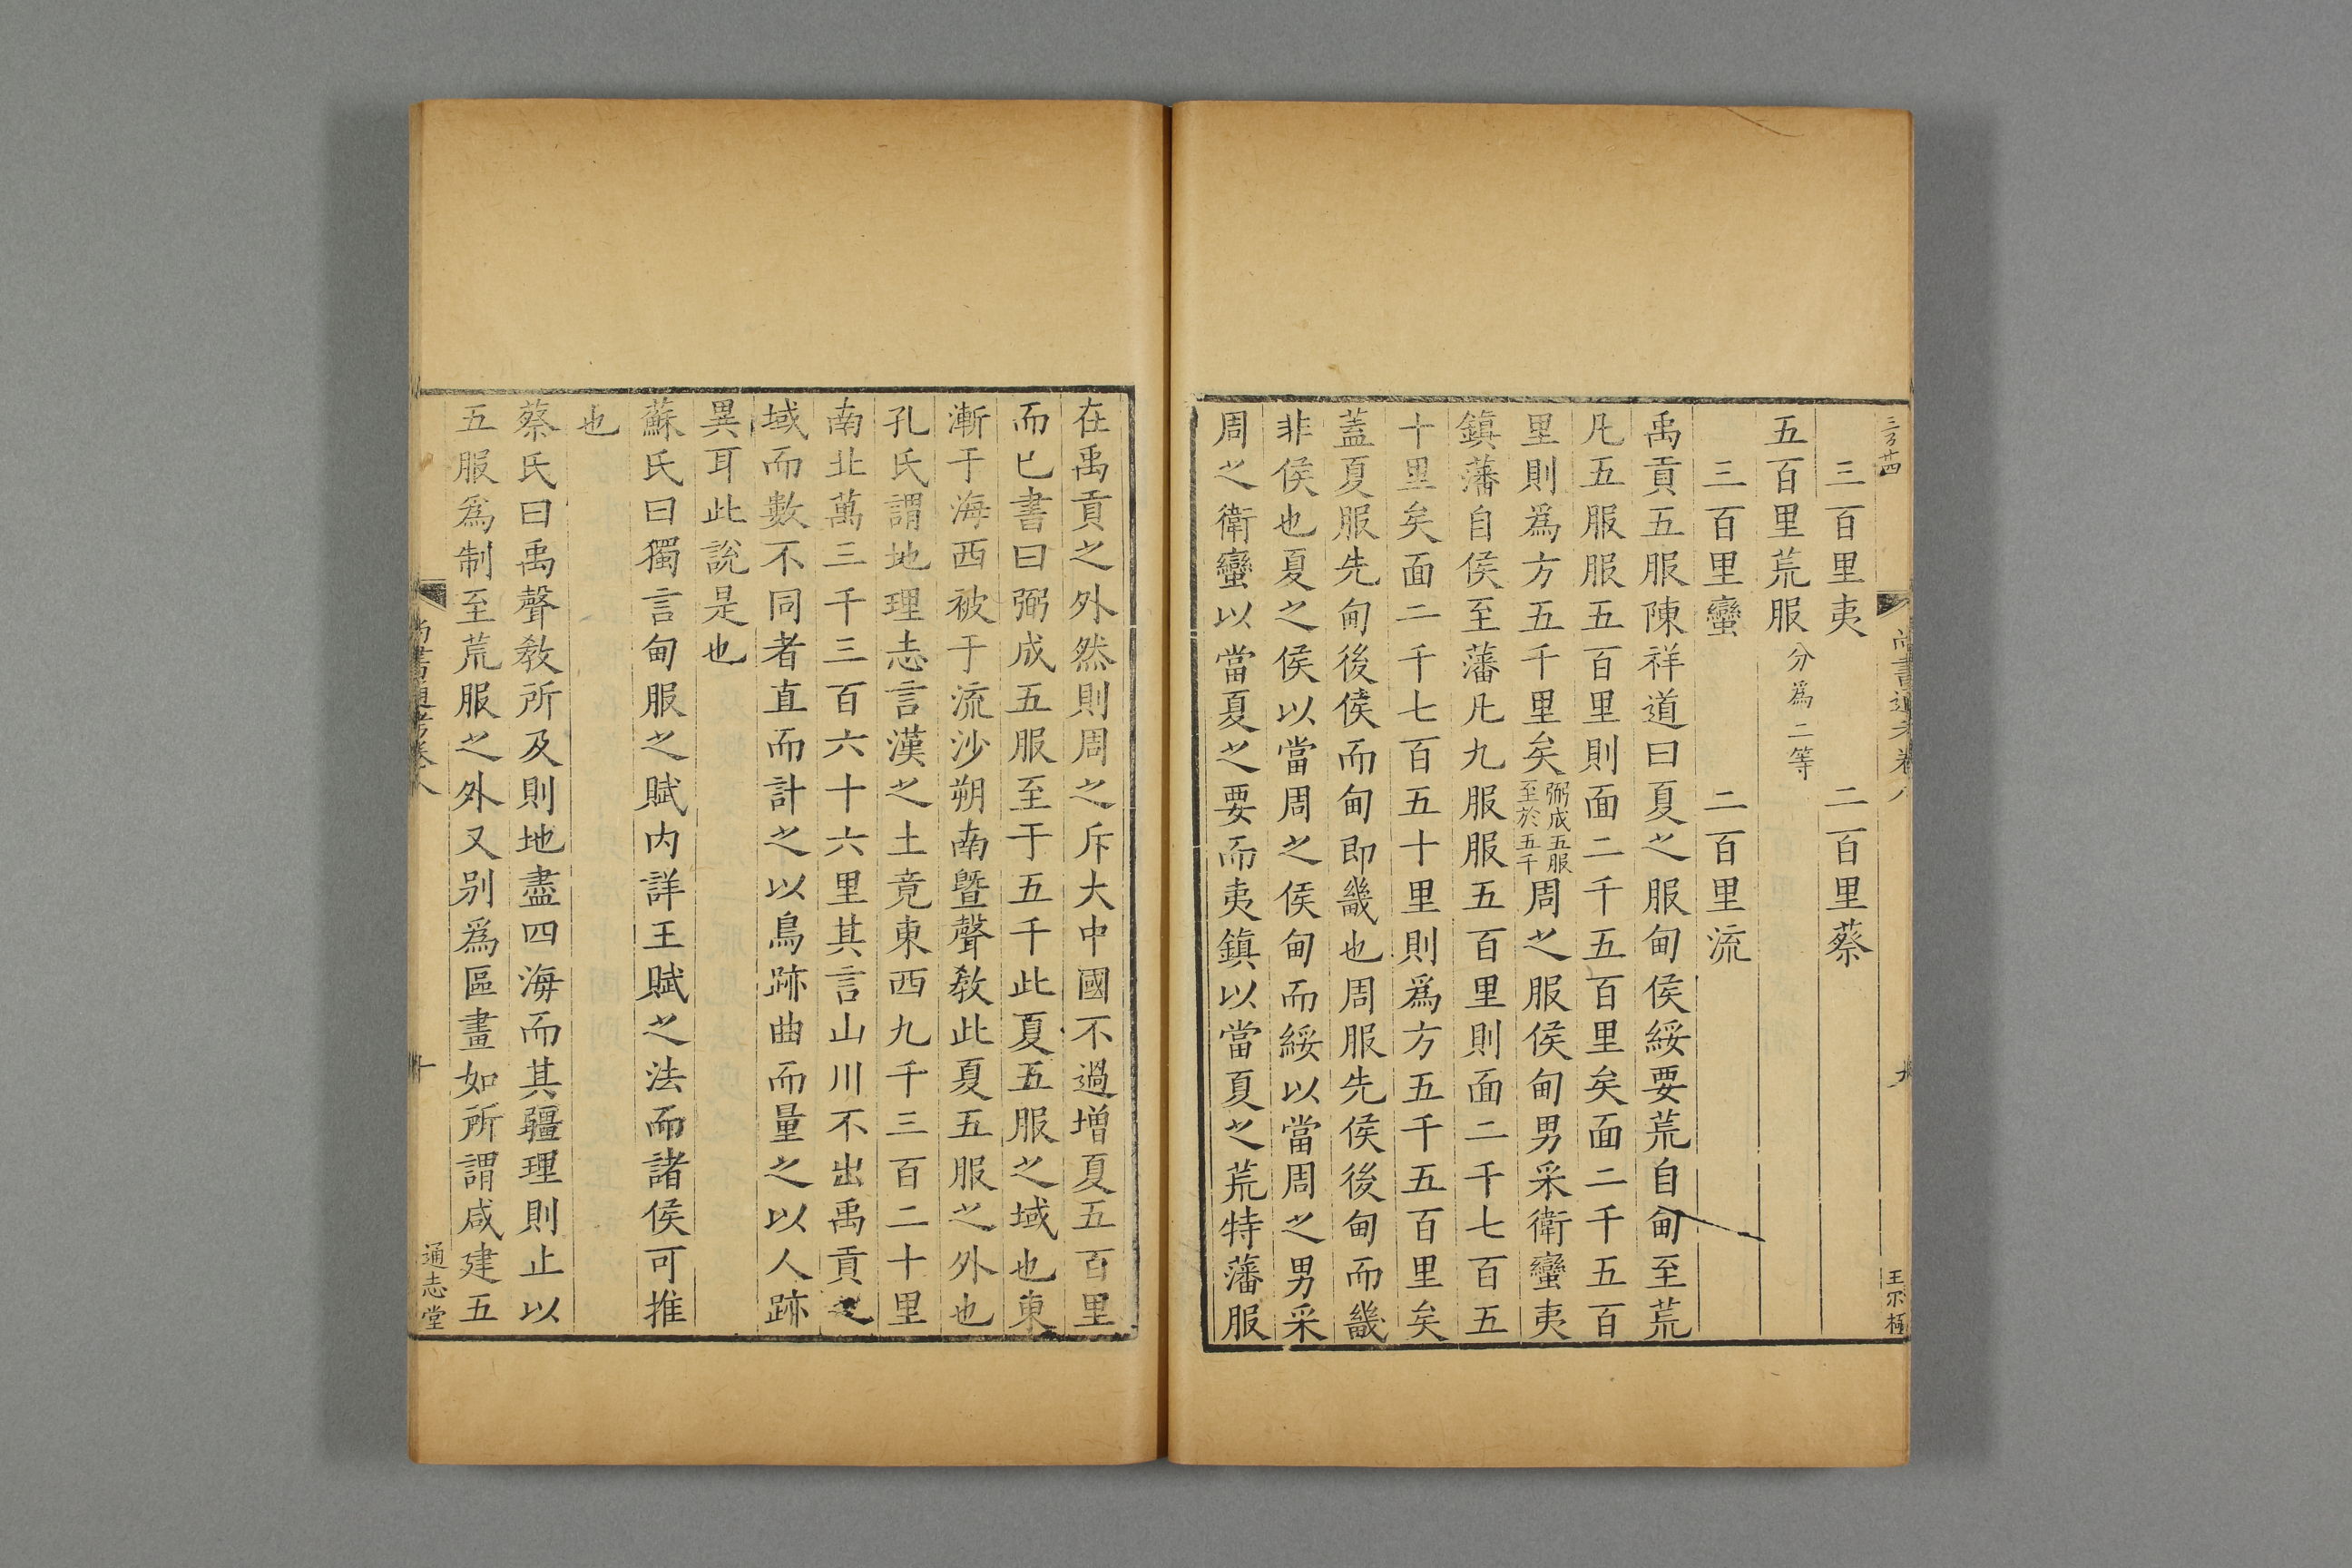 尚書通考卷八
九
三百里夷 二百里蔡
五百里荒服分爲二等
三百里蠻 二百里流
禹貢五服陳祥道曰夏之服甸侯綏要荒自甸至荒
凡五服服五百里則面二千五百里矣面二千五百
里則爲方五千里矣弼成五服至於五千周之服侯甸男采衛蠻夷
鎮藩自侯至藩凡九服服五百里則面二千七百五
十里矣面二千七百五十里則爲方五千五百里矣
蓋夏服先甸後侯而甸即畿也周服先侯後甸而畿
非侯也夏之侯以當周之侯甸而綏以當周之男采
周之衛蠻以當夏之要而夷鎮以當夏之荒特藩服
在禹貢之外然則周之斥大中國不過增夏五百里
而已書曰弼成五服至于五千此夏五服之域也東
漸于海西被于流沙朔南曁聲敎此夏五服之外也
孔氏謂地理志言漢之土竟東西九千三百二十里
南北萬三千三百六十六里其言山川不出禹貢之
域而數不同者直而計之以鳥跡曲而量之以人跡
異耳此說是也
蘇氏曰獨言甸服之賦内詳王賦之法而諸侯可推
也
蔡氏曰禹聲敎所及則地盡四海而其疆理則止以
五服爲制至荒服之外又别爲區畫如所謂咸建五
尚書通考卷八
十
通志堂